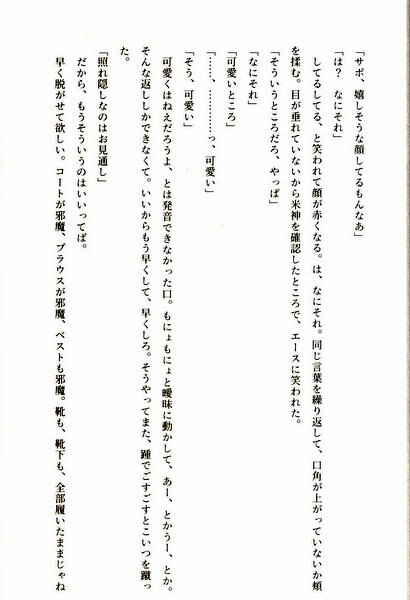 「サボ、嬉しそうな顔してるもんなあ」
「は？　なにそれ」
　してるしてる、と笑われて顔が赤くなる。は、なにそれ。同じ言葉を繰り返して、口角が上がっていないか頬
を揉む。目が垂れていないから米神を確認したところで、エースに笑われた。
「そういうところだろ、やっぱ」
「なにそれ」
「可愛いところ」
「……、…………っ、可愛い」
「そう、可愛い」
　可愛くはねえだろうよ、とは発音できなかった口。もにょもにょと曖昧に動かして、あー、とかうー、とか。
そんな返ししかできなくて。いいからもう早くして、早くしろ。そうやってまた、踵でごすごすとこいつを蹴っ
た。
「照れ隠しなのはお見通し」
　だから、もうそういうのはいいってば。
　早く脱がせて欲しい。コートが邪魔、ブラウスが邪魔、ベストも邪魔。靴も、靴下も、全部履いたままじゃね